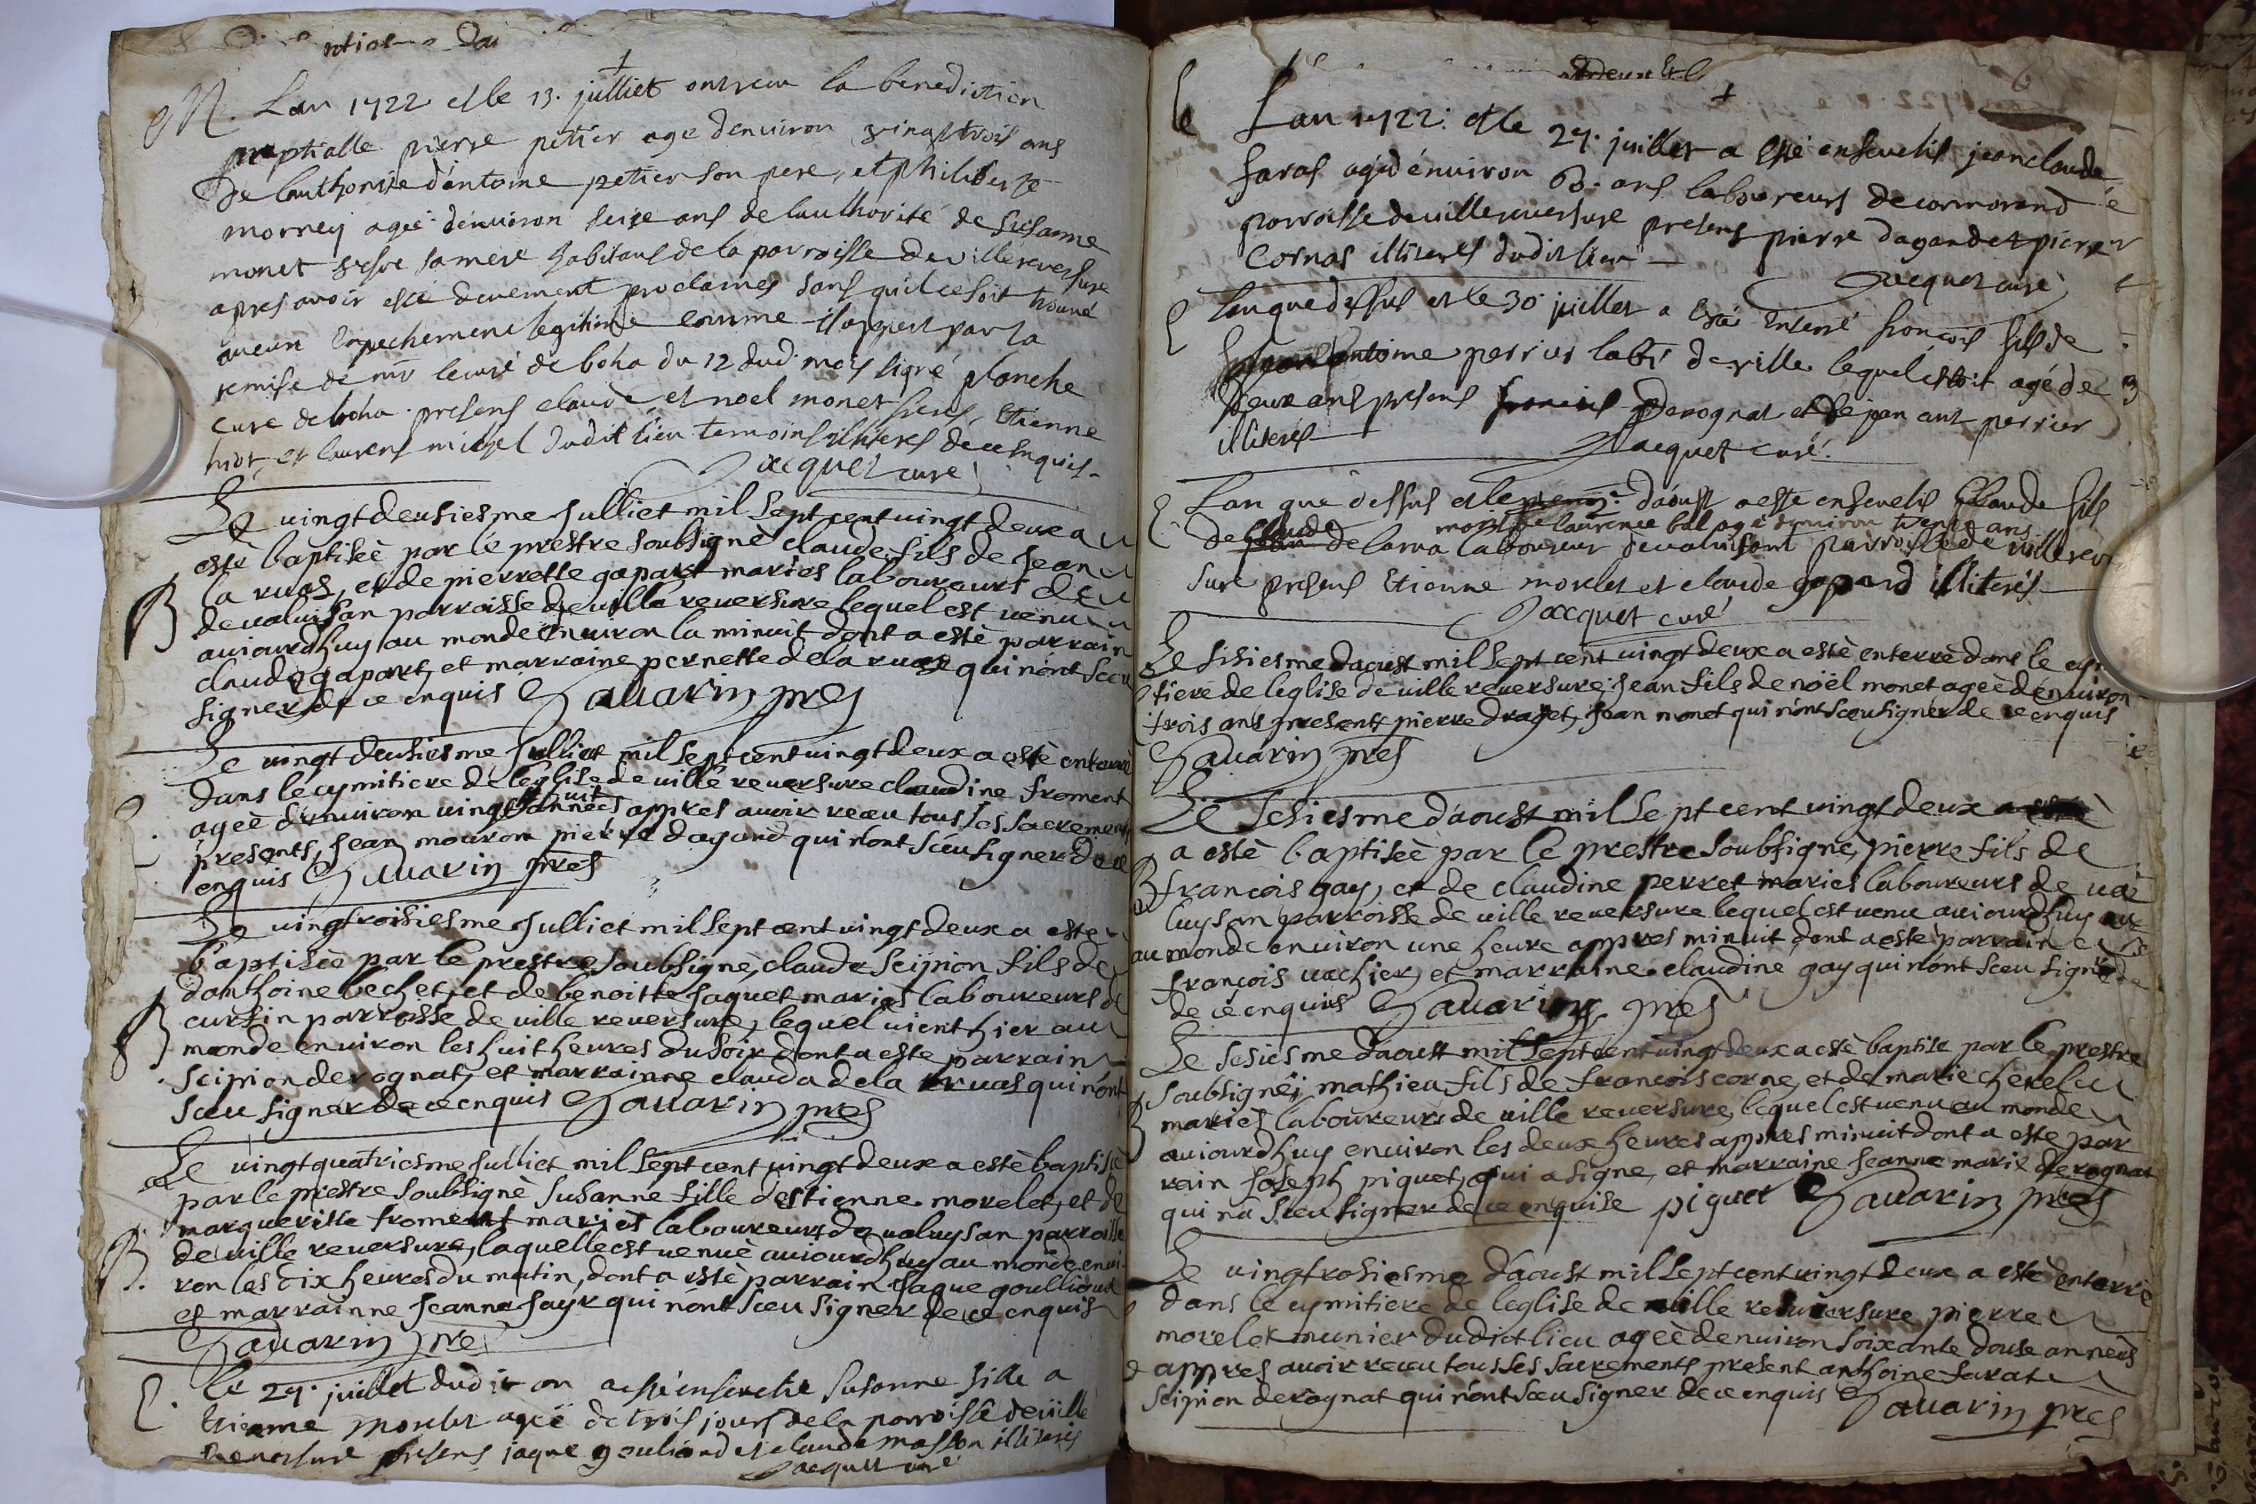 M. Lan 1722 et le 13. julliet ont receu la benediction
nuptialle pierre petier age denviron vingt trois ans
de lauthorité dentoine petier son pere, et philiberte
morney agée denviron seize ans de lauthorité de susanne
monet vefve sa mere habitans de la parroisse de villereversure
apres avoir esté deuement proclamés sans quil ce soit trouvé
aucun enpechement legitime comme il appert par la
remise de mr le curé de boha du 12 dud. mois signé planche
curé de boha. presens claude et noel monet freres, etienne
et laurens michel dudit lieu temoins illiteres de ce enquis
Jacquet curé
Le vingt deusiesme Julliet mil sept cent vingt deux a
esté baptiseé par le prestre soubsigné claude fils de Jean
la ruas, et de pierrette gapart mariés laboureurs de
de valuisan parroisse de ville reversure lequel est venu
aujourdhuy au monde environ la minuit dont a esté parrain
B
claude gapart, et marraine pernette dela ruas qui n'ont sceu
signer de ce enquis Savarin pres
Le vingt deusiesme Julliet mil sept cent vingt deux a esté enterré
dans le cymitiere de l'eglise de ville reversure claudine froment
ageé denviron vingt huit années appres avoir receu tous ses sacrements
presents, Jean mouron pierre dagand qui n'ont sceu signer de ce
enquis Savarin pres
Le vingtroisiesme Julliet mil sept cent vingt deux a esté
baptiseé par le prestre soubsigné, claude scipion fils de
danthoine bechet, et de benoitte Jaquet mariés laboureurs de
cursin parroisse de ville reversure, lequel vient hier au
B
monde environ les huit heures du soir dont a esté parrain
scipion derognat, et marrainne clauda dela ruas qui n'ont
sceu signer de ce enquis Savarin pres
Le vingt quatriesme Julliet mil sept cent vingt deux a esté baptiseé
par le prestre soubsigné susanne fille d'estienne morelet, et de
margueritte froment mariés laboureurs de valuysan parroisse
B.
de ville reversure, laquelle est venue aujourdhuy au monde envi
ron les dix heures du matin, dont a esté parrain Jaque goulliond
et marrainne Jeanne fayr qui n'ont sceu signer de ce enquis
Savarin pre
Le 27. juillet dudit an a esté ensevelie susanne fille a
etienne agée de trois jours de la parroisse de ville
reversure presens jaque gouliond et claude masson illiterés
Jacquet curé
Lan 1722. et le 27. juillet a esté ensevelis jean claude
faras agé denviron 63. ans laboureurs de cormorand
parroisse de villereversure presens pierre dagand et pierre
cornas illiterés dudit lieu
Jacquet curé
Lan que dessus et le 30 juillet a esté enterré françois fils de
antoine perrier labr. de ville lequel estoit agé de
deux ans presens derognat et jean ant perrier
illiterés Jacquet curé.
Lan que dessus et le d'aoust a esté ensevelis claude fils
mary de laurence bal agé denviron trente ans
de claude de larua laboureur de valuisant parroisse de villerever
sure presens etienne morelet et claude gapard illiterés
Jacquet curé
Le sisiesme d'aoust mil sept cent vingt deux a esté enterré dans le cym
tiere de l'eglise de ville reversure, Jean fils de noël monet ageé denviron
trois ans presents pierre draget, Jean monet qui n'ont sceu signer de ce enquis
Savarin pres
Le sesiesme d'aoust mil sept cent vingt deux
a esté baptiseé par le prestre soubsigné, pierre fils de
B
françois gay, et de claudine perret mariés laboureurs de va
luysan parroisse de ville reversure lequel est venu aujourdhuy
au monde environ une heure appres minuit dont a esté parrain
françois vachier, et marraine claudine gay qui n'ont sceu signer
de ce enquis Savarin pres
Le sesiesme d'aoust mil sept cent vingt deux a esté baptisé par le prestre
soubsigné, mathieu fils de françois corne, et de marie cherel
B
mariés laboureurs de ville reversure, lequel est venu au monde
aujourdhuy environ les deux heures appres minuit dont a esté par
rain Joseph piquet, qui a signé, et marraine Jeanne marie derognat
qui n'a sceu signer de ce enquise piquet Savarin pres
Le vingtrosiesme d'aoust mil sept cent vingt deux a esté enterré
dans le cymitiere de l'eglise de ville reversure pierre
morelet munier dudict lieu ageé denviron soixante douse années
appres avoir receu tous ses sacrements present anthoine farat
scipion derognat qui n'ont sceu signer de ce enquis Savarin pres